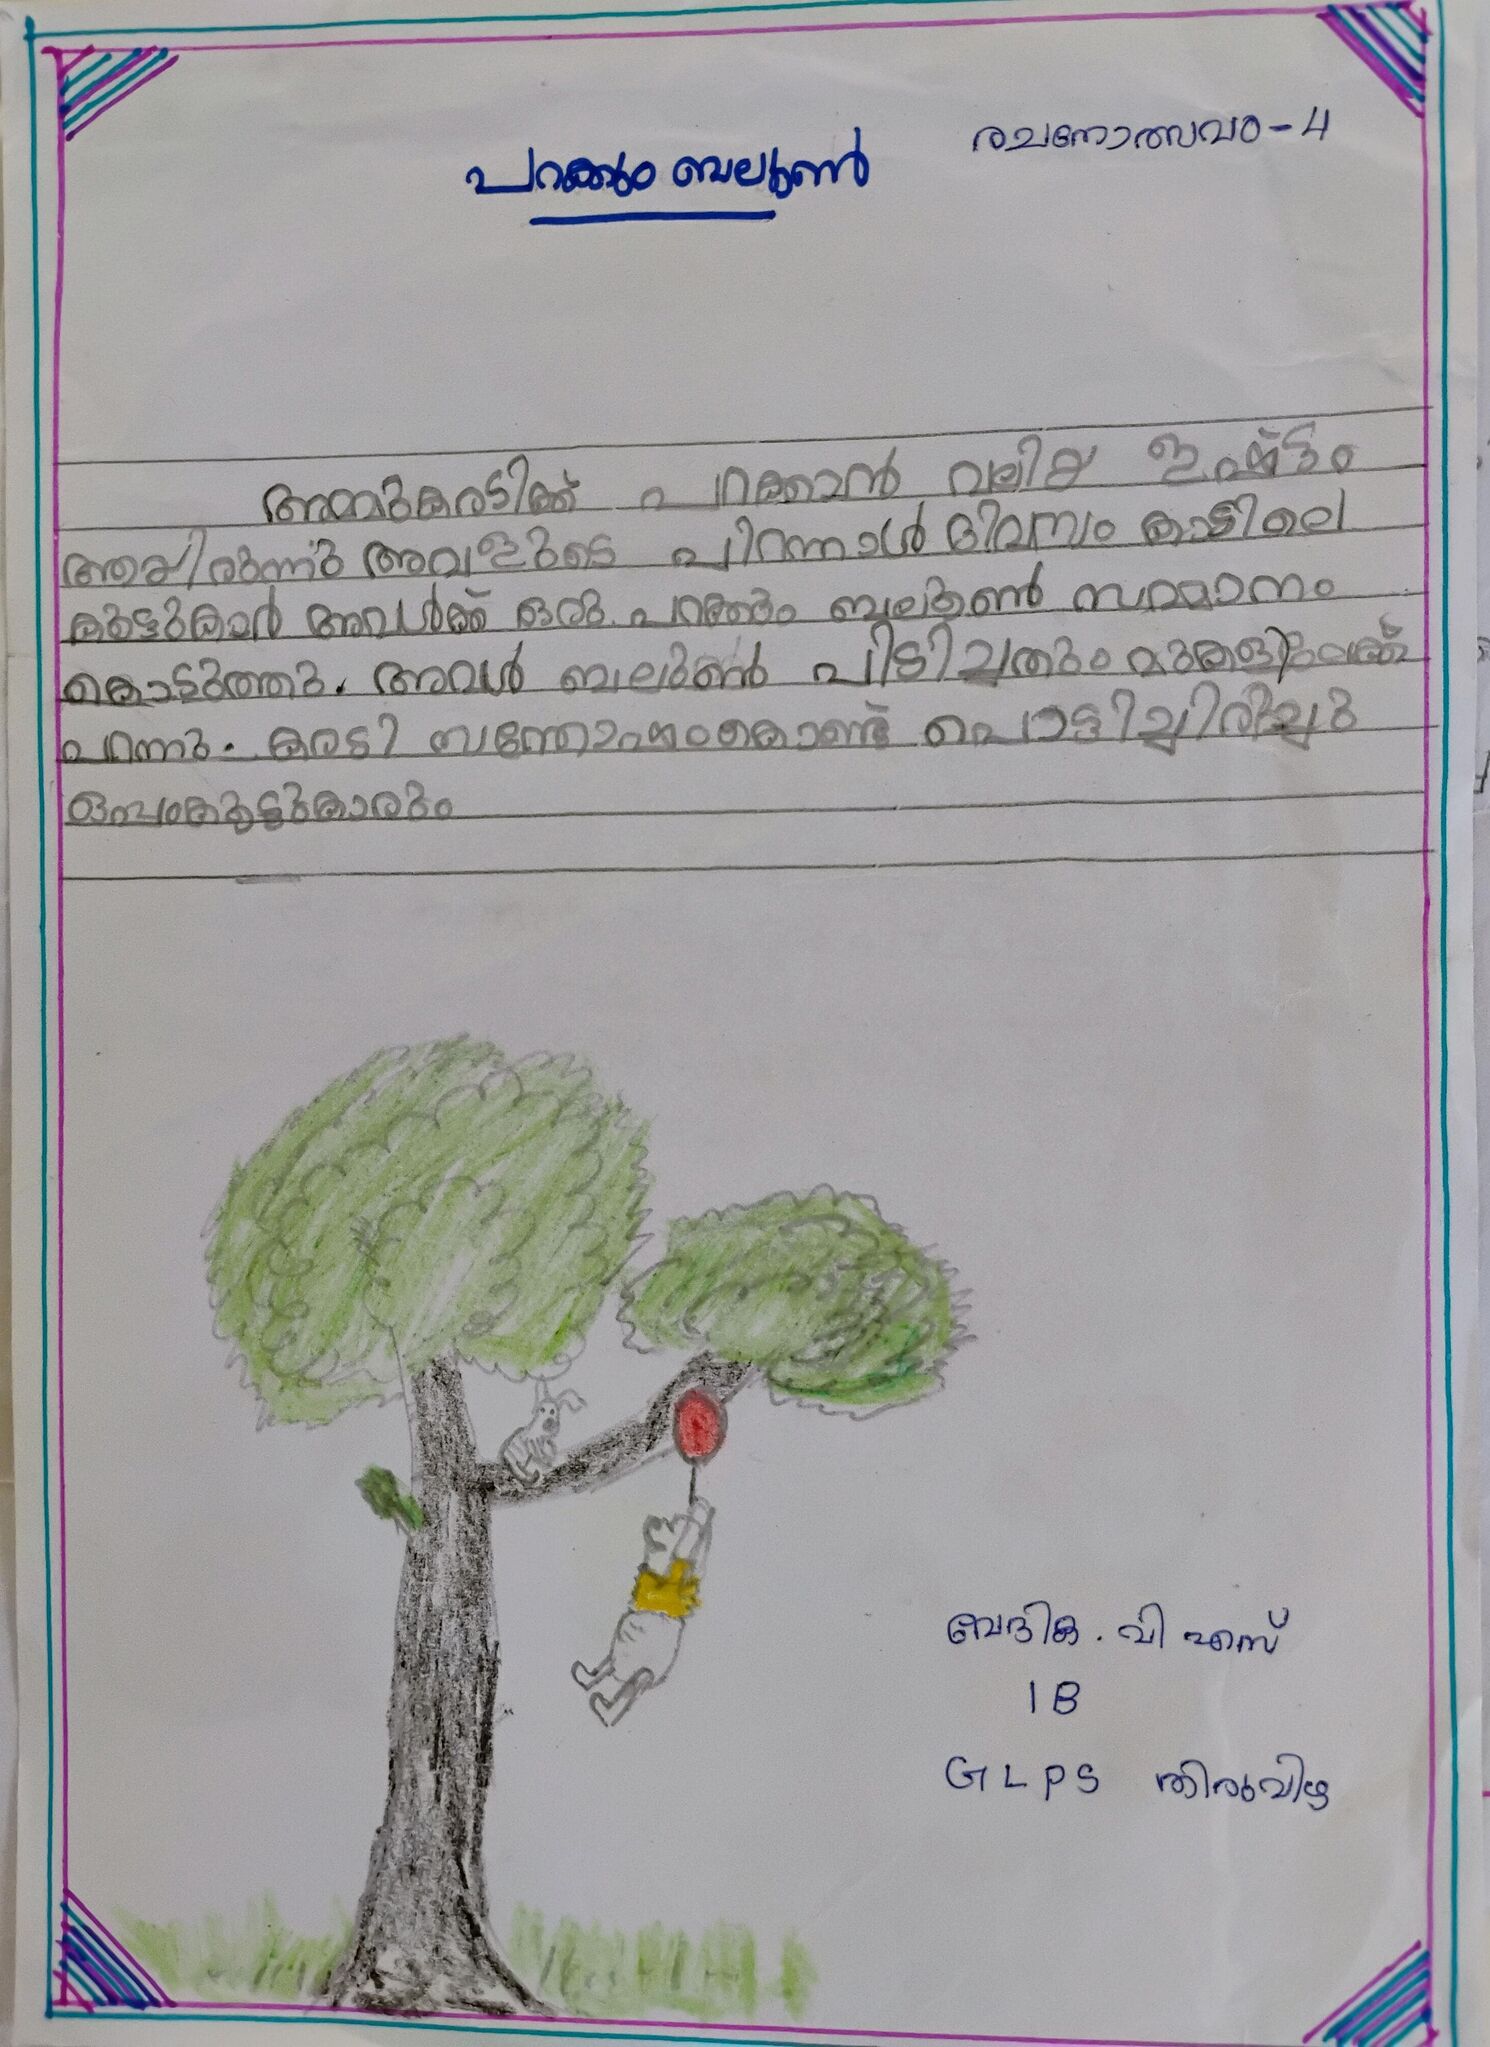 രചനോത്സവം - 4
പറക്കും ബലൂൺ
അമ്മുകരടിക്ക് പറക്കാൻ വലിയ ഇഷ്ടം
ആയിരുന്നു അവളുടെ പിറന്നാൾ ദിവസം കാട്ടിലെ
കൂട്ടുകാർ അവൾക്ക് ഒരു പറക്കും ബലൂൺ സമ്മാനം
കൊടുത്തു. അവൾ ബലൂൺ പിടിച്ചതും മുകളിലേക്ക്
പറന്നു. കരടി സന്തോഷംകൊണ്ട് പൊട്ടിച്ചിരിച്ചു
ഒപ്പംകൂട്ടുകാരും
വേദിക. വി എസ്
1 B
G L P S തിരുവിഴ